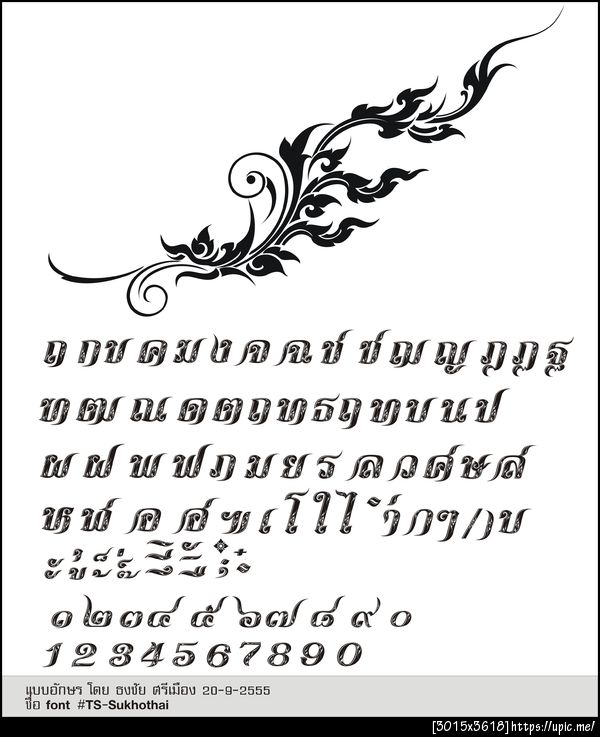 ฤ ก ข ค ฆ ง จ ฉ ช ซ ฌ ญ ฎ ฏ ฐ
ฑ ฒ ณ ด ต ถ ท ธ น ป
ผ ฝ พ ฟ ภ ม ย ร ล ว ศ ษ ส
ห ฬ อ ฮ ฯ เ โ ใ ไ
๑ ๒ ๓ ๔ ๕ ๖ ๗ ๘ ๙ ๐
1 2 3 4 5 6 7 8 9 0
แบบอักษร โดย ธงชัย ศรีเมือง 20-9-2555
ชื่อ font #TS-Sukhothai
[3015x3618]https://upic.me/